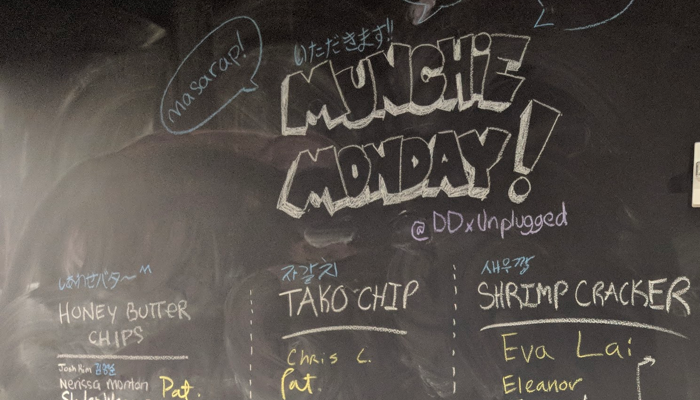 masarap!
いただきます!!
MUNCHiE
MONDAY!
@DDxUnplugged
しあわせバタ〜
HONEY BUTTER
CHIPS
Josh Kim
Nerissa Monton
Pat.
자갈치
TAKO CHIP
Chris C.
Pat.
새우깡
SHRIMP CRACKER
Eva Lai
Eleanor